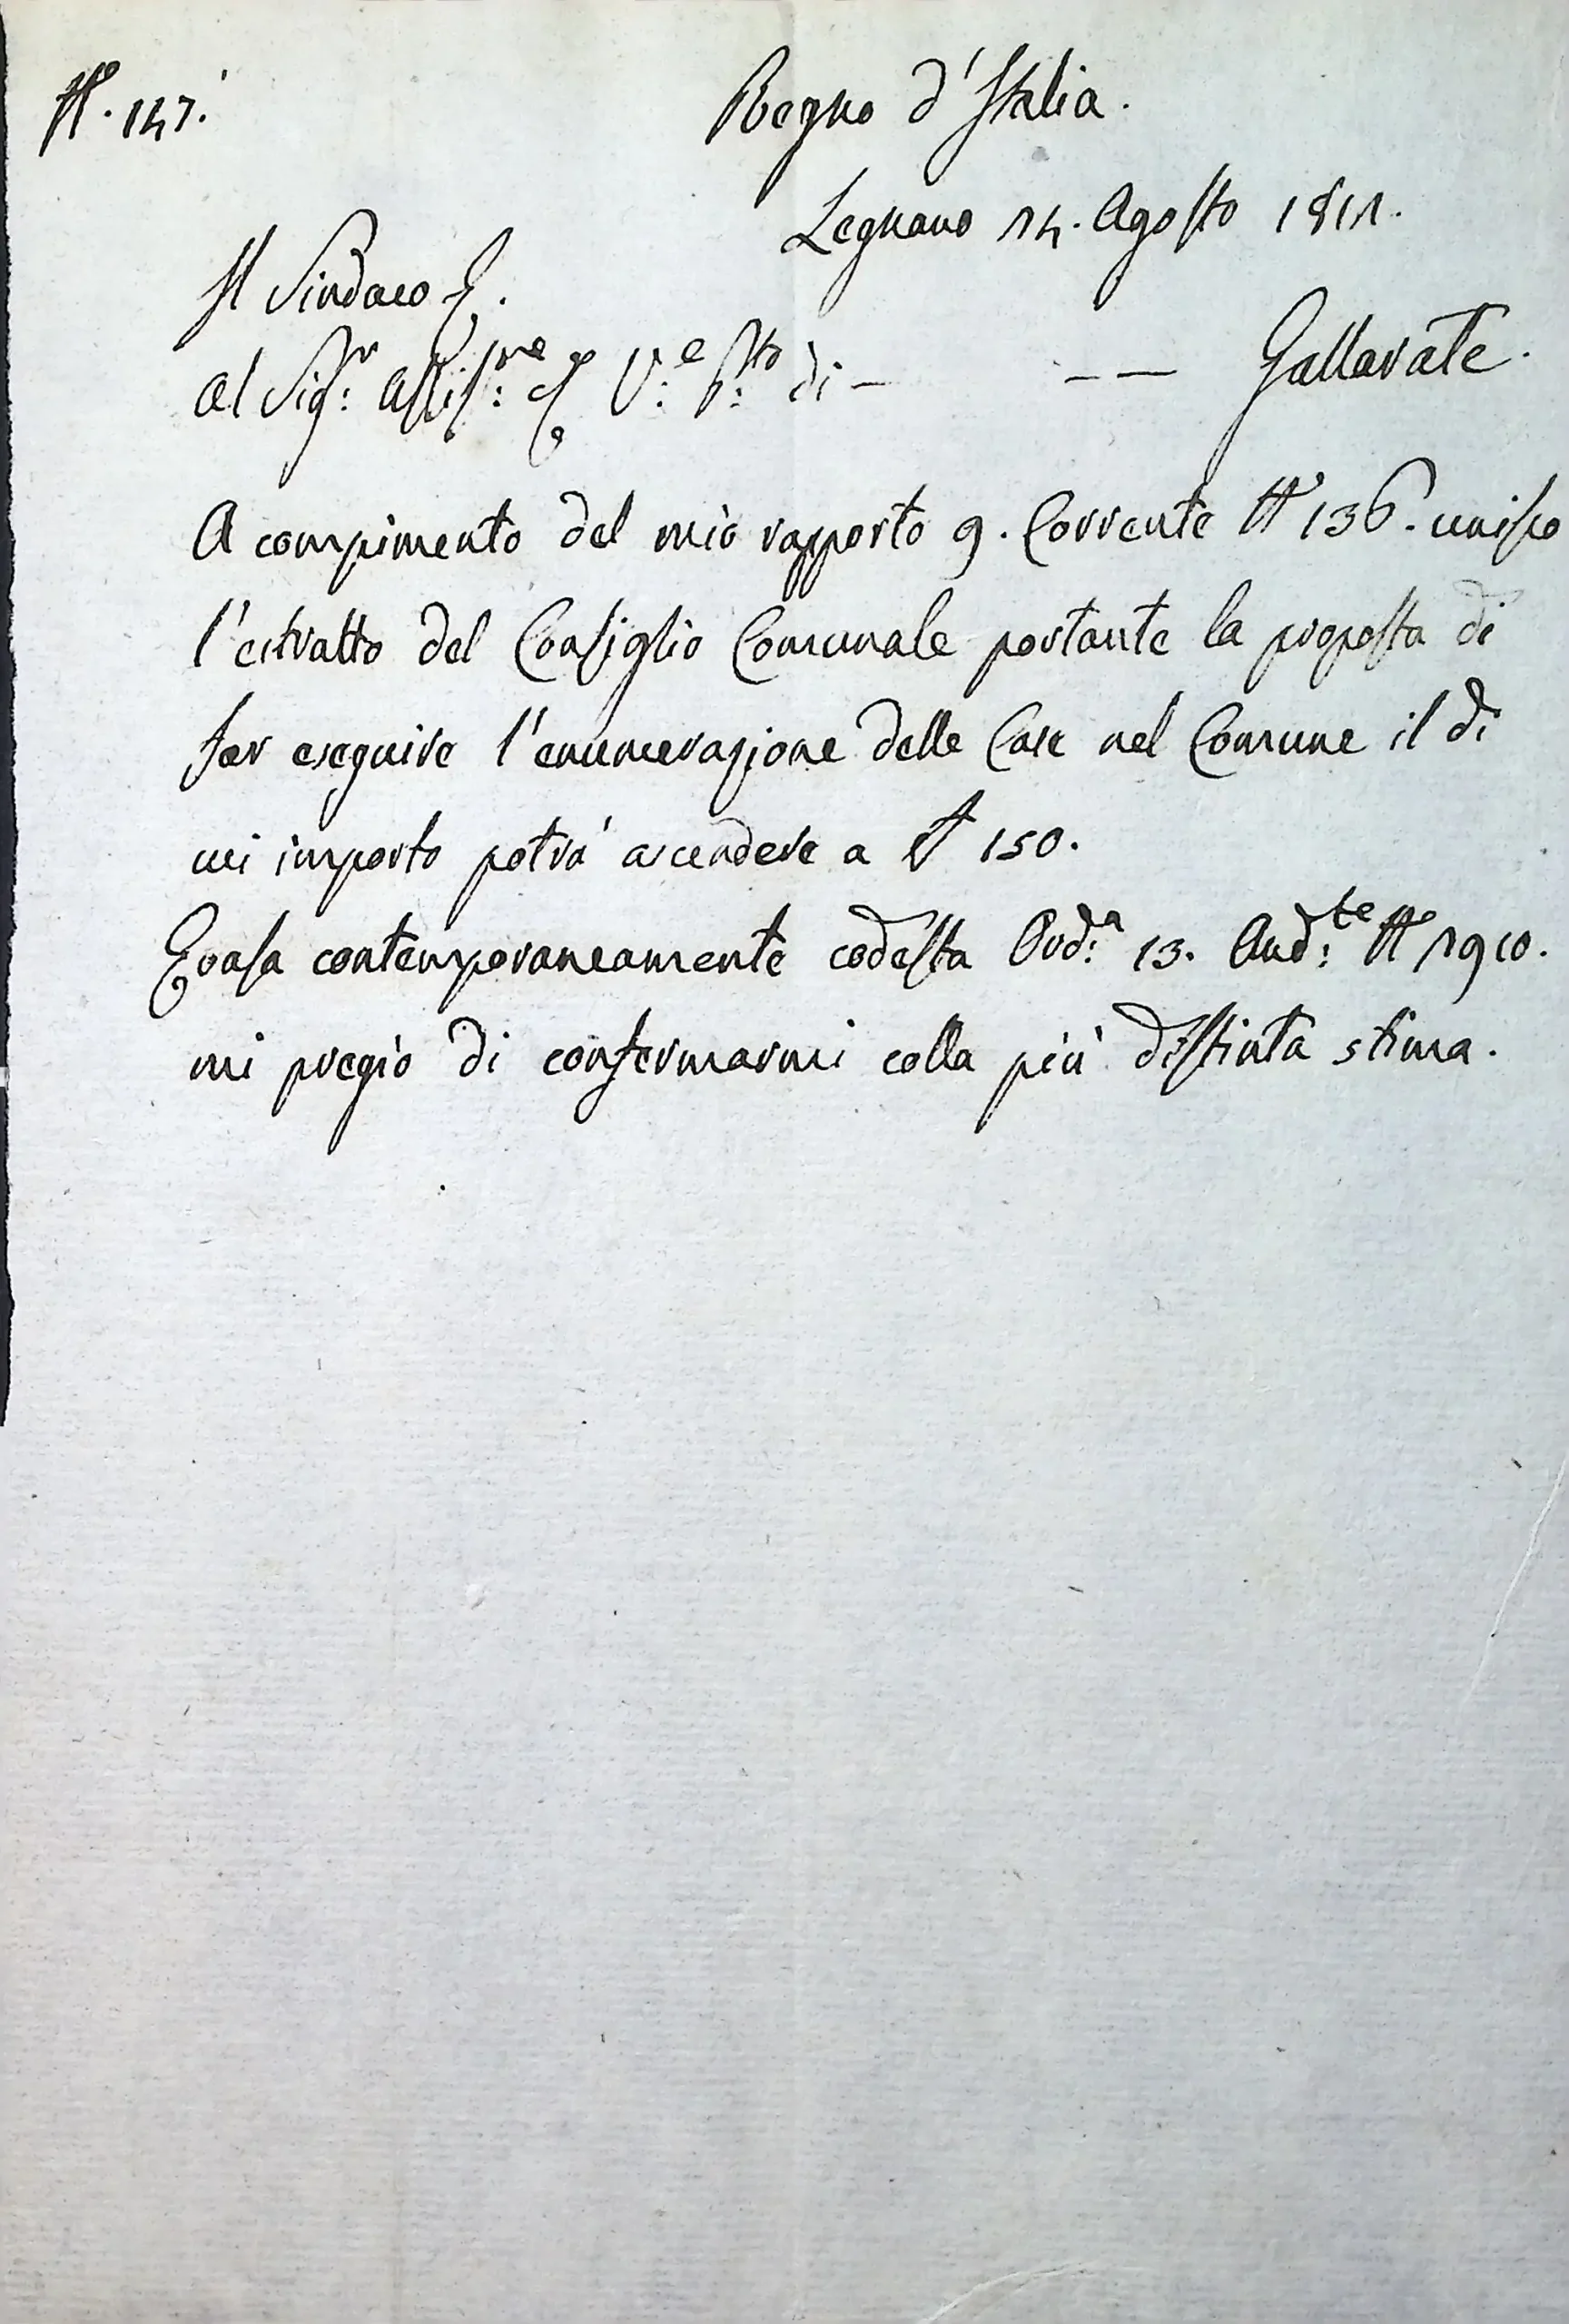 N.° 147.
Regno d'Italia.
Legnano 14. Agosto 1811.
Il Sindaco
Al Sig:r di — — — Gallarate.
A compimento del mio rapporto 9. Corrente N° 136. unisco
l'estratto del Consiglio Comunale portante la proposta di
far eseguire l'enumerazione delle Case nel Comune il di
cui importo potrà ascendere a 150.
Evasa contemporaneamente codesta Ord:a 13. And:te N° 1910.
mi pregio di confermarmi colla più distinta stima.